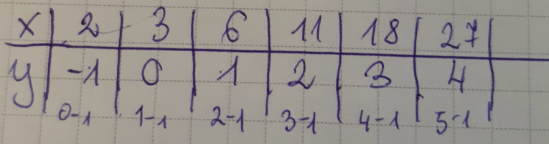 x | 2 | 3 | 6 | 11 | 18 | 27 |
y | -1 | 0 | 1 | 2 | 3 | 4 |
0-1 | 1-1 | 2-1 | 3-1 | 4-1 | 5-1